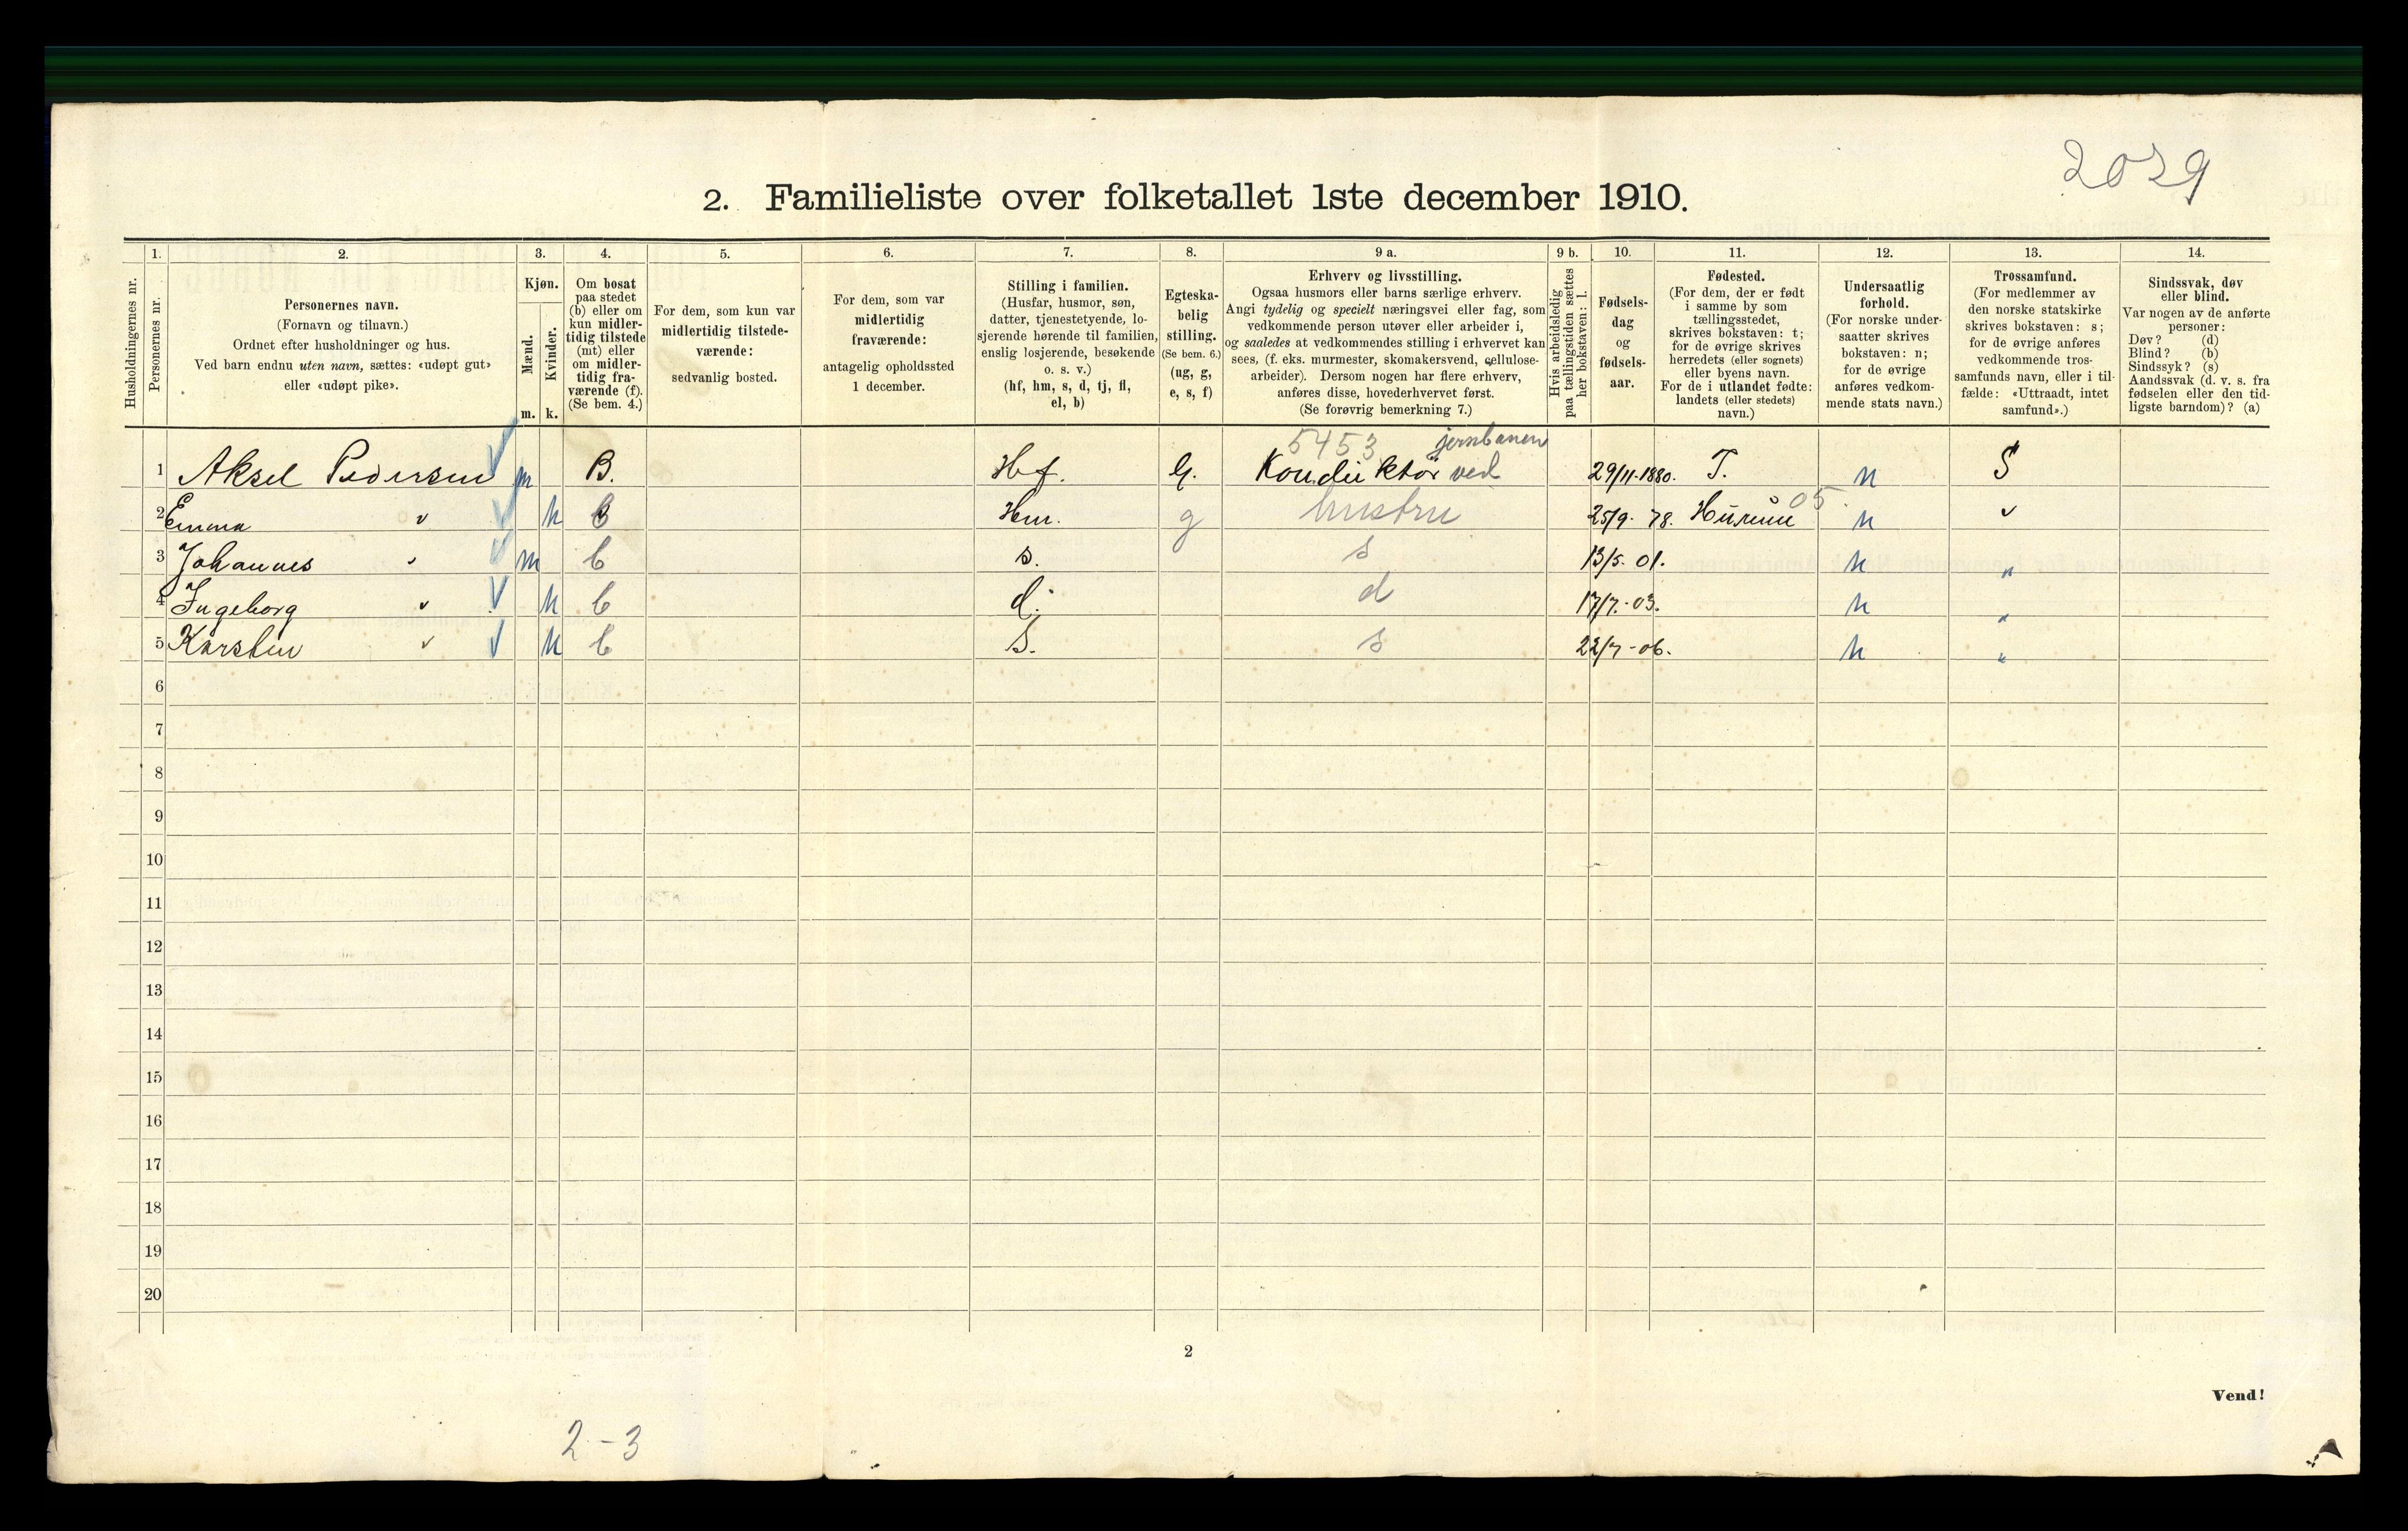 2029
2. Familieliste over folketallet 1ste december 1910.
Husholdningernes nr.
1. Personernes nr.
2. Personernes navn.
(Fornavn og tilnavn.)
Ordnet efter husholdninger og hus.
Ved barn endnu uten navn, sættes: «udøpt gut»
eller «udøpt pike».
3. Kjøn.
Mænd. m.
Kvinder. k.
4. Om bosat
paa stedet
(b) eller om
kun midler-
tidig tilstede
(mt) eller
om midler-
tidig fra-
værende (f).
(Se bem. 4.)
5. For dem, som kun var
midlertidig tilstede-
værende:
sedvanlig bosted.
6. For dem, som var
midlertidig
fraværende:
antagelig opholdssted
1 december.
7. Stilling i familien.
(Husfar, husmor, søn,
datter, tjenestetyende, lo-
sjerende hørende til familien,
enslig losjerende, besøkende
o. s. v.)
(hf, hm, s, d, tj, fl,
el, b)
8. Egteska-
belig
stilling.
(Se bem. 6.)
(ug, g,
e, s, f)
9 a. Erhverv og livsstilling.
Ogsaa husmors eller barns særlige erhverv.
Angi tydelig og specielt næringsvei eller fag, som
vedkommende person utøver eller arbeider i,
og saaledes at vedkommendes stilling i erhvervet kan
sees, (f. eks. murmester, skomakersvend, cellulose-
arbeider). Dersom nogen har flere erhverv,
anføres disse, hovederhvervet først.
(Se forøvrig bemerkning 7.)
9 b. Hvis arbeidsledig
paa tællingstiden sættes
her bokstaven: l.
10. Fødsels-
dag
og
fødsels-
aar.
11. Fødested.
(For dem, der er født
i samme by som
tællingsstedet,
skrives bokstaven: t;
for de øvrige skrives
herredets (eller sognets)
eller byens navn.
For de i utlandet fødte:
landets (eller stedets)
navn.)
12. Undersaatlig
forhold.
(For norske under-
saatter skrives
bokstaven: n;
for de øvrige
anføres vedkom-
mende stats navn.)
13. Trossamfund.
(For medlemmer av
den norske statskirke
skrives bokstaven: s;
for de øvrige anføres
vedkommende tros-
samfunds navn, eller i til-
fælde: «Uttraadt, intet
samfund».)
14. Sindssvak, døv
eller blind.
Var nogen av de anførte
personer:
Døv? (d)
Blind? (b)
Sindssyk? (s)
Aandssvak (d. v. s. fra
fødselen eller den tid-
ligste barndom)? (a)
5453 jernbanen
1 Aksel Pedersen m B. Hf. G. Konduktør ved 29/11-1880. T. n S
2 Emma " k b Hm. g hustru 25/9-78. Hurum 05 n "
3 Johannes " m b s. s 13/5-01. n "
4 Ingeborg " k b d. d 17/7-03. n "
5 Karsten " k b S. s 22/7-06. n "
6
7
8
9
10
11
12
13
14
15
16
17
18
19
20
2
Vend!
2-3